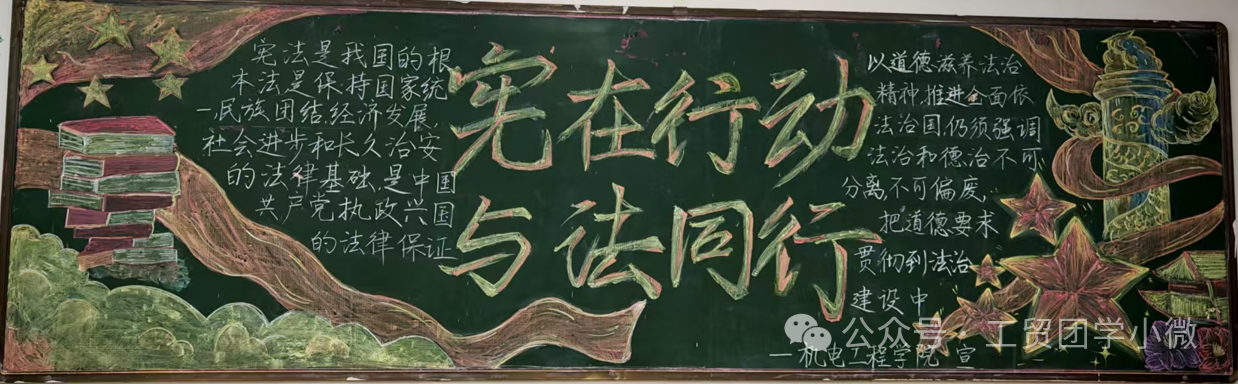 宪法是我国的根
本法是保持国家统
一、民族团结、经济发展、
社会进步和长久治安
的法律基础,是中国
共产党执政兴国
的法律保证
宪在行动
与法同行
以道德滋养法治
精神,推进全面依
法治国,仍须强调
法治和德治不可
分离,不可偏废,
把道德要求
贯彻到法治
建设中
—机电工程学院 宣
公众号·工贸团学小微